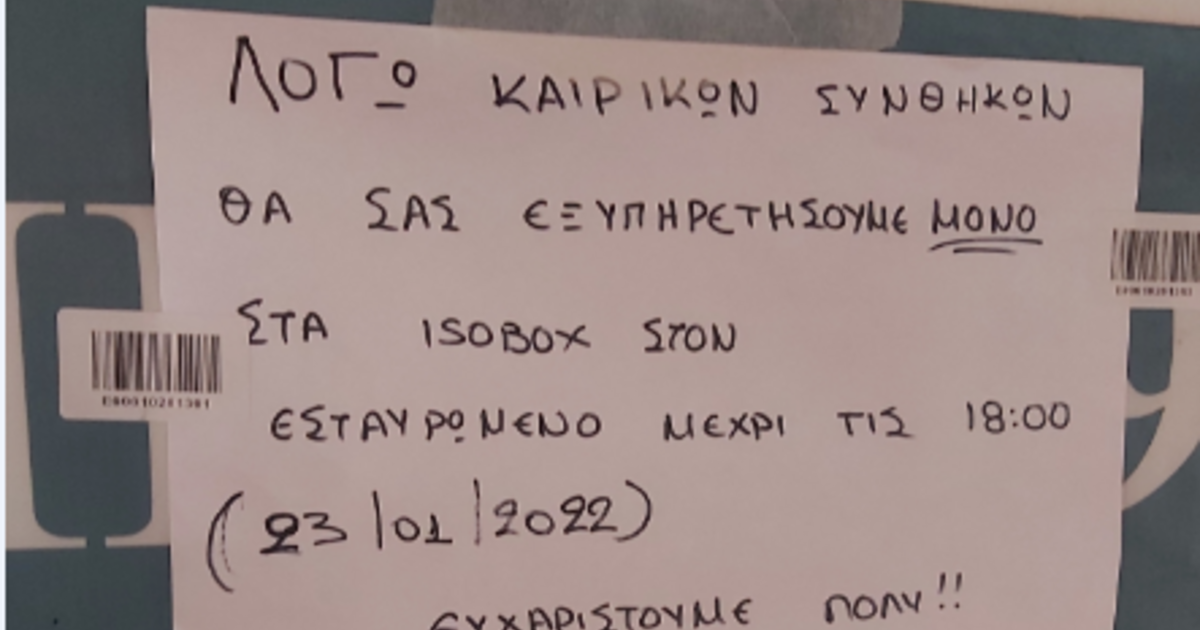 ΛΟΓΩ ΚΑΙΡΙΚΩΝ ΣΥΝΘΗΚΩΝ
ΘΑ ΣΑΣ ΕΞΥΠΗΡΕΤΗΣΟΥΜΕ ΜΟΝΟ
ΣΤΑ ISOBOX ΣΤΟΝ
ΕΣΤΑΥΡΩΜΕΝΟ ΜΕΧΡΙ ΤΙΣ 18:00
(23/01/2022)
ΕΥΧΑΡΙΣΤΟΥΜΕ ΠΟΛΥ!!